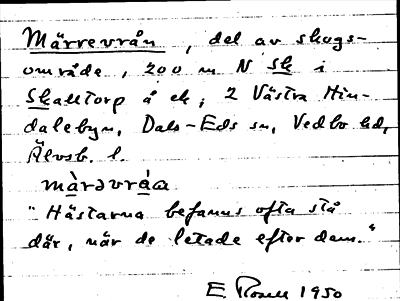 Märrevrån, del av skogs-
område, 200 m N Sk i
Skaltorp å ek; 2 Västra Hin-
dalebyn, Dals-Eds sn, Vedbo hd,
Älvsb. l.
màrəvrá̱ɑ
"Hästarna befanns ofta stå
där, när de letade efter dem."
E. Rosell 1950